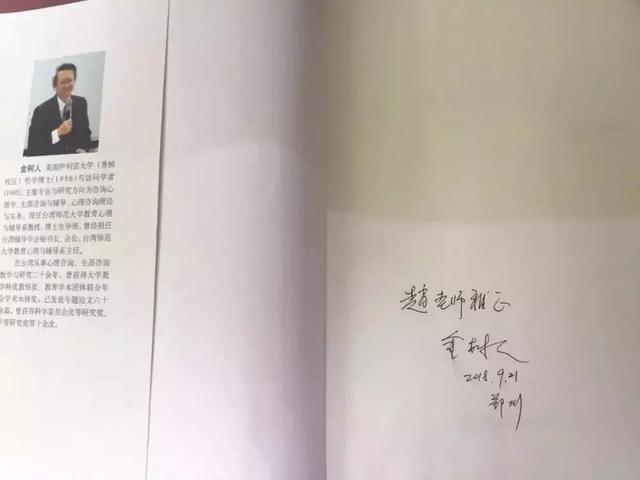 金树人 美国伊利诺大学（香槟
校区）哲学博士(1986)与访问学者
(1995)。主要专业与研究方向为咨询心
理学、生涯咨询与辅导、心理咨询理论
与实务。现任台湾师范大学教育心理
与辅导系教授、博士生导师。曾经担任
台湾辅导学会秘书长、会长。台湾师范
大学教育心理与辅导系主任。
在台湾从事心理咨询、生涯咨询
教学与研究二十余年。曾获得大学教
学特优教师奖、教育学术团体联合年
会学术木铎奖；已发表专题论文六十
余篇，曾获得科学委员会优等研究奖、
甲等研究奖等十余次。
趙老师雅正
金树人
2018.9.21
郑州